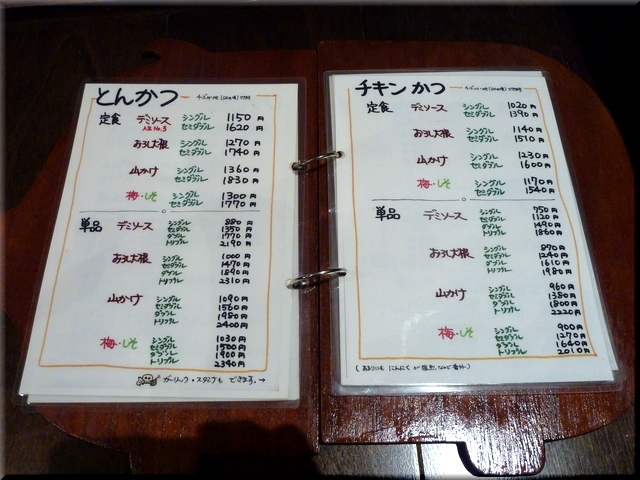 とんかつ
定食 デミソース シングル 1150円
人気No.3 セミダブル 1620円
おろし大根 シングル 1270円
セミダブル 1740円
山かけ シングル 1360円
セミダブル 1830円
梅・しそ シングル 1300円
セミダブル 1770円
単品 デミソース シングル 880円
セミダブル 1350円
ダブル 1770円
トリプル 2190円
おろし大根 シングル 1000円
セミダブル 1470円
ダブル 1890円
トリプル 2310円
山かけ シングル 1090円
セミダブル 1560円
ダブル 1980円
トリプル 2400円
梅・しそ シングル 1030円
セミダブル 1500円
ダブル 1900円
トリプル 2340円
ガーリック・スタミナも できます。→
チキンかつ
定食 デミソース シングル 1020円
セミダブル 1390円
おろし大根 シングル 1140円
セミダブル 1510円
山かけ シングル 1230円
セミダブル 1600円
梅・しそ シングル 1170円
セミダブル 1540円
単品 デミソース シングル 750円
セミダブル 1120円
ダブル 1490円
トリプル 1860円
おろし大根 シングル 870円
セミダブル 1240円
ダブル 1610円
トリプル 1980円
山かけ シングル 960円
セミダブル 1380円
ダブル 1800円
トリプル 2220円
梅・しそ シングル 900円
セミダブル 1270円
ダブル 1640円
トリプル 2010円